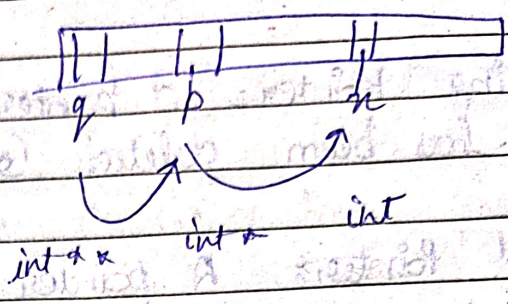 q p x
int ** int * int